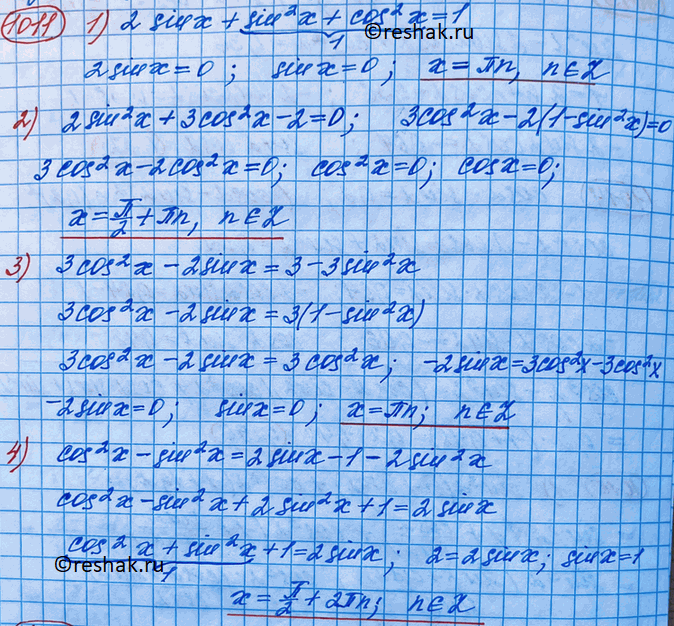 1011 1) 2 sinx + sin²x + cos²x = 1
1
©reshak.ru
2sinx = 0 ; sinx = 0 ; x = πn, n∈Z
2) 2sin²x + 3cos²x - 2 = 0; 3cos²x - 2(1 - sin²x) = 0
3cos²x - 2cos²x = 0; cos²x = 0; cosx = 0;
x = π/2 + πn, n∈Z
3) 3cos²x - 2sinx = 3 - 3sin²x
3cos²x - 2sinx = 3(1 - sin²x)
3cos²x - 2sinx = 3cos²x; -2sinx = 3cos²x - 3cos²x
-2sinx = 0; sinx = 0; x = πn; n∈Z
4) cos²x - sin²x = 2sinx - 1 - 2sin²x
cos²x - sin²x + 2sin²x + 1 = 2sinx
cos²x + sin²x + 1 = 2sinx; 2 = 2sinx; sinx = 1
1
©reshak.ru
x = π/2 + 2πn; n∈Z